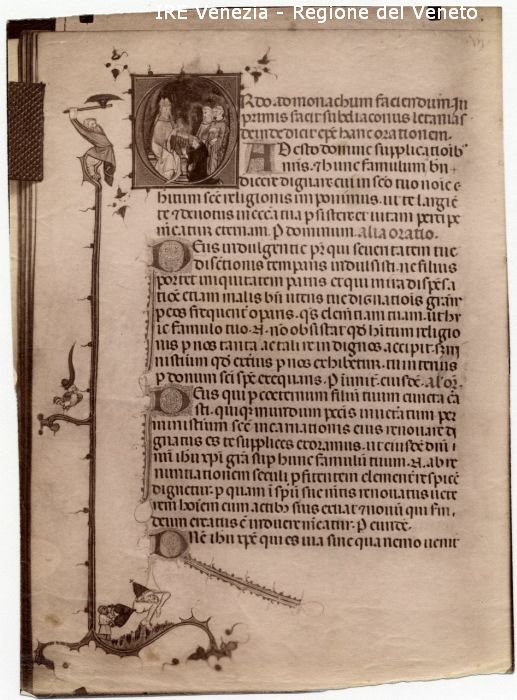 IRE Venezia - Regione del Veneto
Ordo ad monachum faciendum. In
primis facit subdiaconus letanias
deinde dicit epc hanc orationem.
Adesto domine supplicatioib
nris. & hunc famulum
dicere dignare cui in sco tuo noie
bitum sce religionis imponimus. ut te largien
te & devotus in eccia tua psistere et vitam
mereatur eternam. P dominum alia oratio.
Deus indulgentie pr qui severitatem tue
districtionis temperans indulsisti. ne filius
portet iniquitatem patris et qui mira dispensa
tione etiam malis bn utens tue dignatiois gram
p eos frequenter opans. qs clemtiam tuam. ut
ic famulo tuo. A. no obsistat qd hitum religio
nis p nos tanta ac tali re indignos accipit. s; mi
nisterium qd exterius p nos exhibetur. tu interius
p donum sci sps exequaris.
Deus qui p coeternum filium tuum cuncta cre
asti. quiq; mundum peccis inveteratum per
ministerium sce incarnationis eius renovare di
gnatus es te supplices exoramus. ut eiusdem dni
nri ihu xpi gra sup hunc famulum tuum. A. abre
nuntiationem seculi pfitentem clementer respicere
digneris. p quam in spu sue mentis renovatus vete
rem hoiem cum actib suis exuat & novum qui scdm
deum creatus e induere mereatur. P eundem.
Dne ihu xpe qui es via sine qua nemo venit